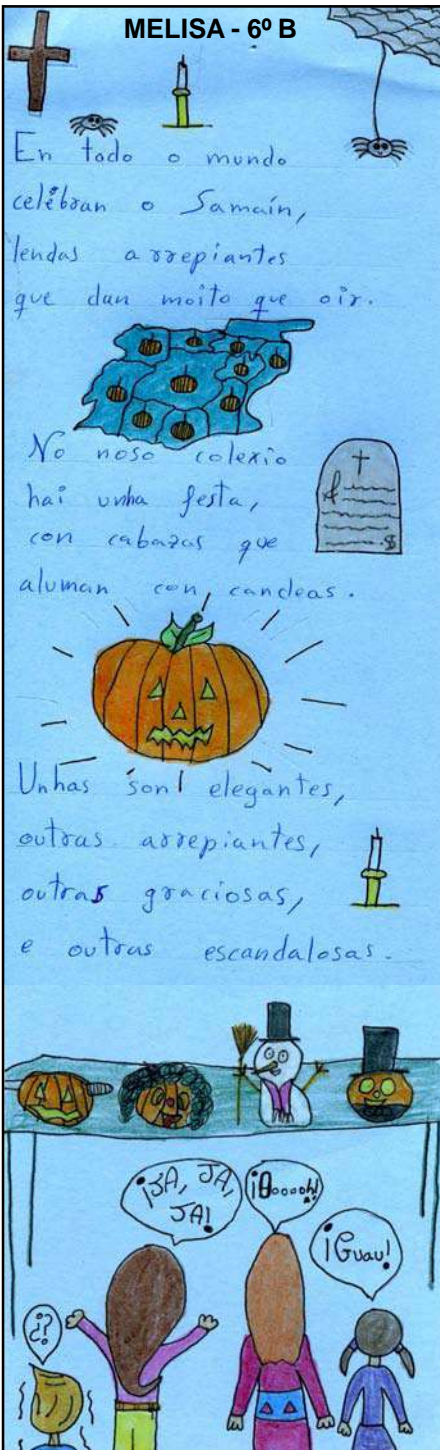 MELISA - 6º B
En todo o mundo
celébran o Samaín,
lendas arrepiantes
que dan moito que oir.
No noso colexio
hai unha festa,
con cabazas que
aluman con candeas.
Unhas son elegantes,
outras arrepiantes,
outras graciosas,
e outras escandalosas.
¡JA, JA,
JA!
¡Oooooh!
¡Guau!
¿?